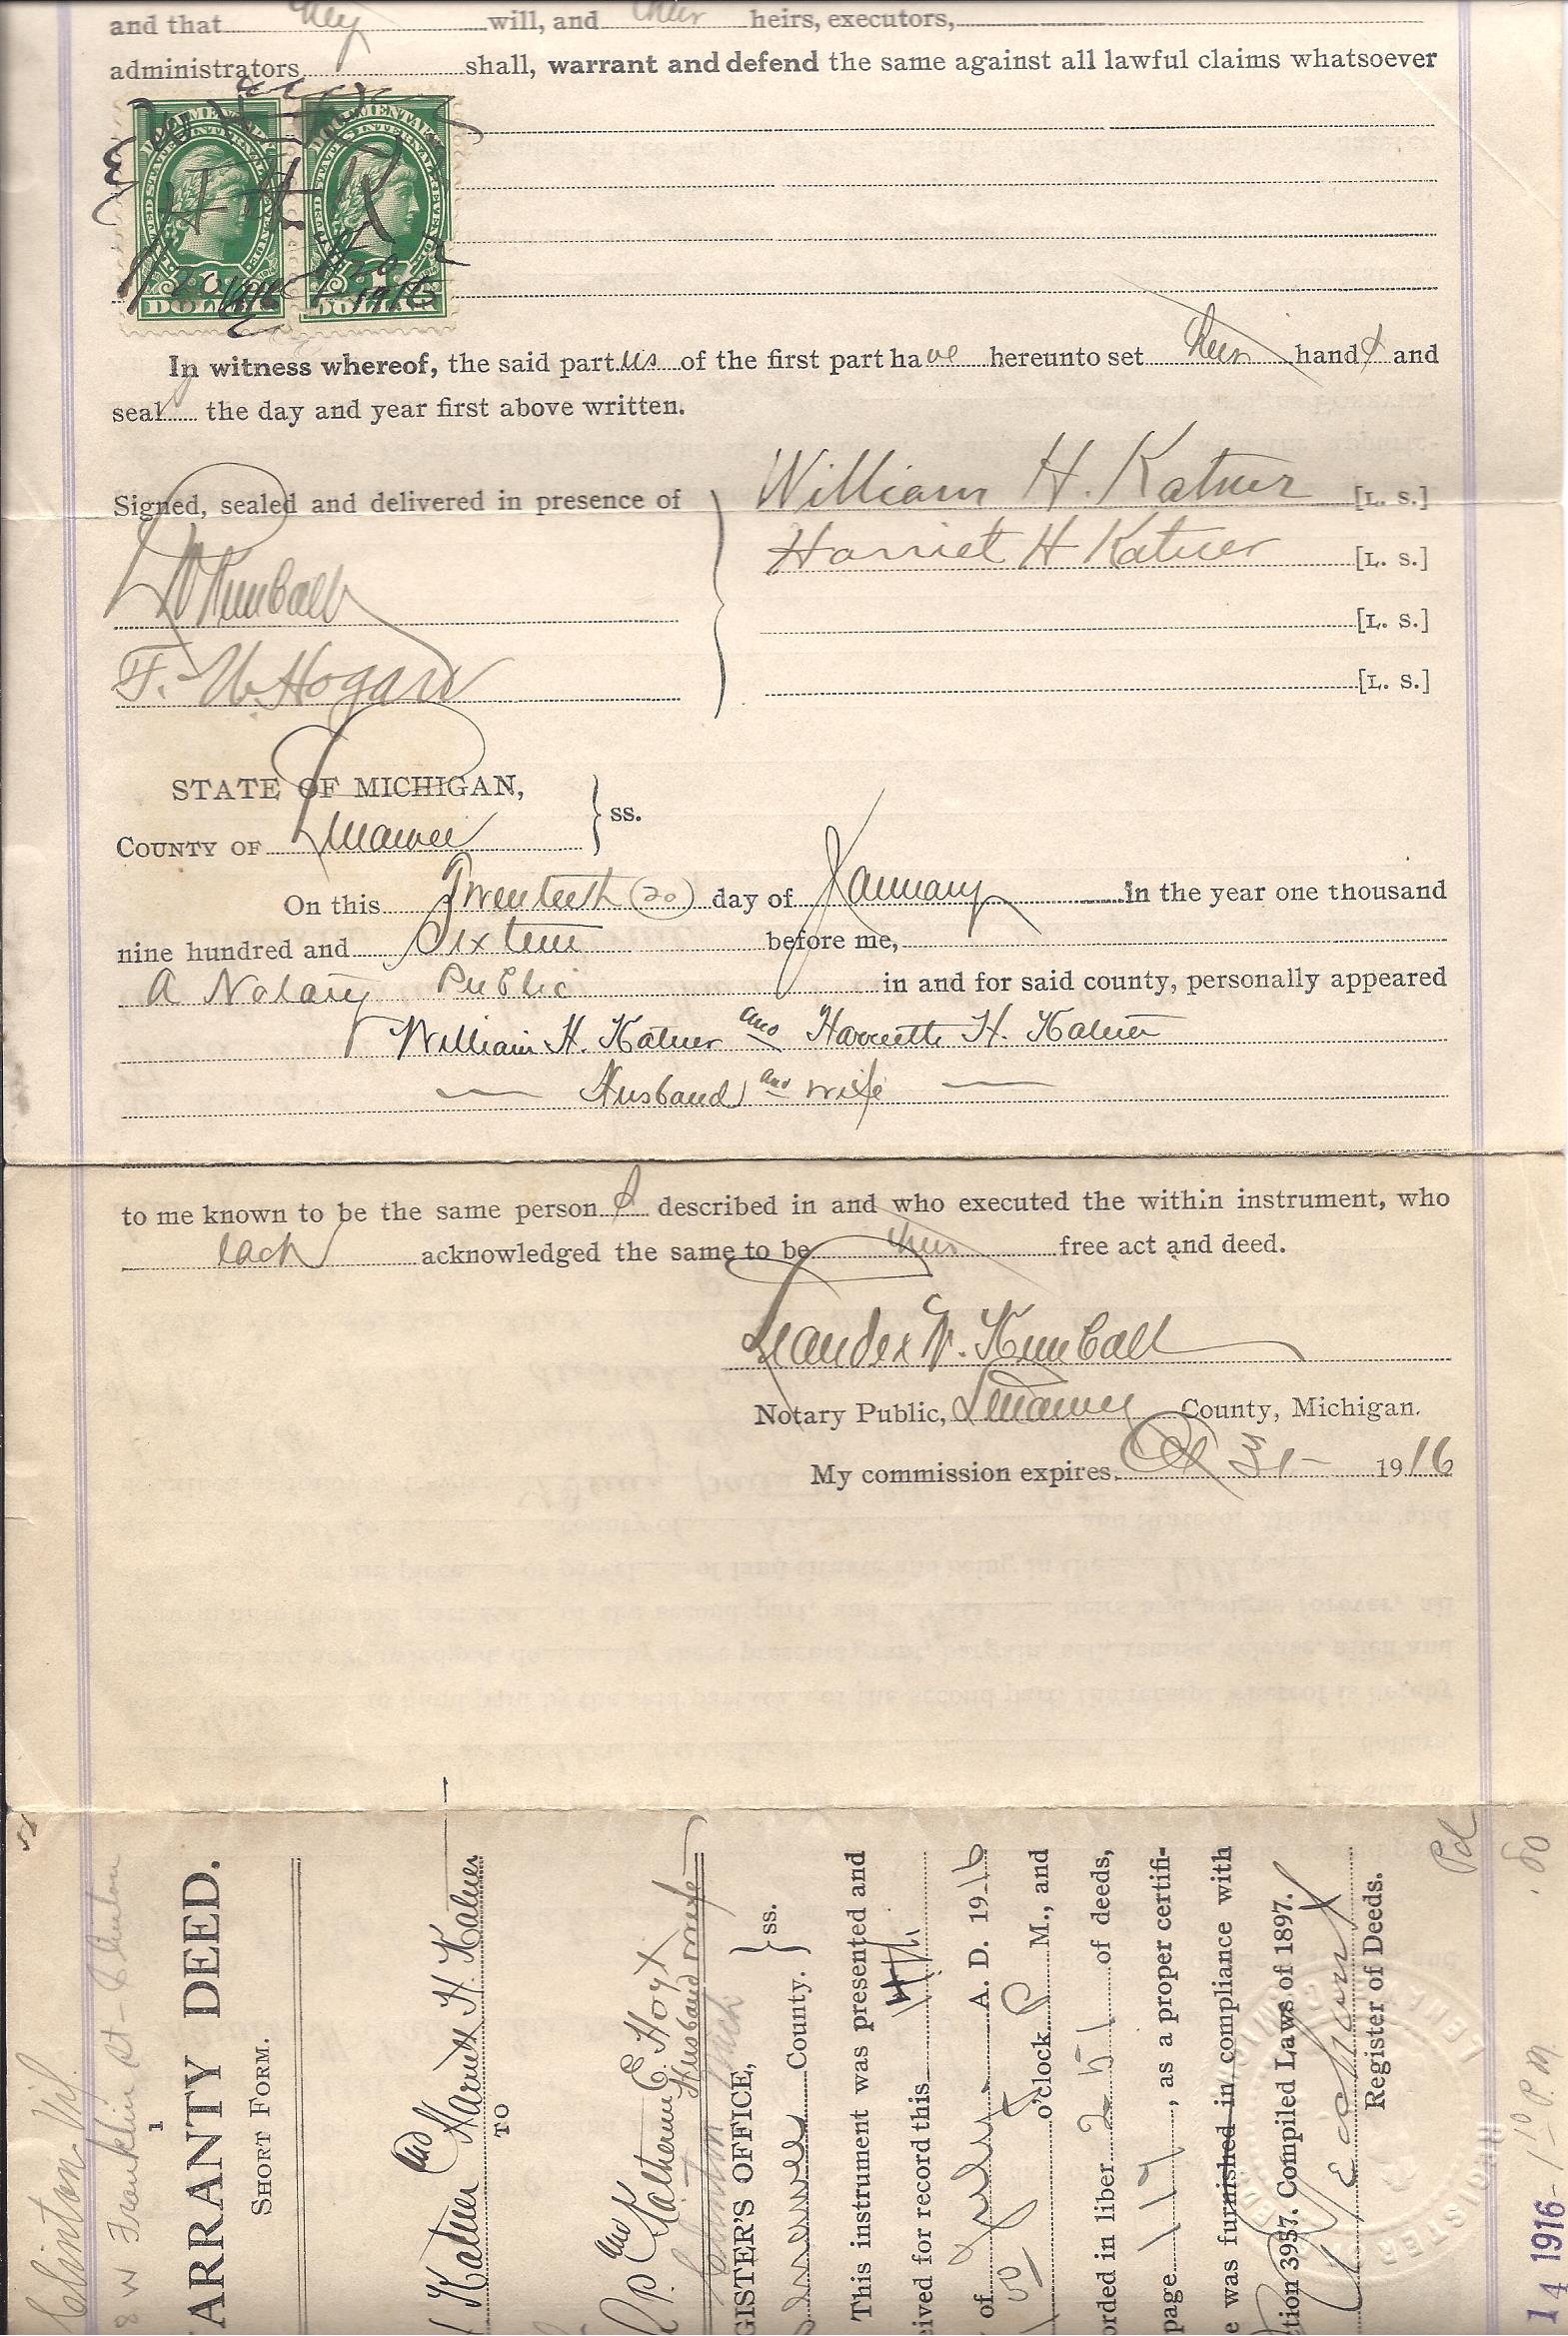 and that they will, and their heirs, executors,
administrators shall, warrant and defend the same against all lawful claims whatsoever
DOCUMENTARY DOCUMENTARY
UNITED STATES INTERNAL REVENUE UNITED STATES INTERNAL REVENUE
H H K
1/20 1916 1/20 1916
DOLLAR DOLLAR
In witness whereof, the said parties of the first part have hereunto set their hands and
seal the day and year first above written.
Signed, sealed and delivered in presence of
William H. Katner [L. S.]
Harriet H Katner [L. S.]
L W Kimball
[L. S.]
F. W. Hogan
[L. S.]
STATE OF MICHIGAN,
COUNTY OF Lenawee } ss.
On this Twentieth (20) day of January In the year one thousand
nine hundred and Sixteen before me,
A Notary Public in and for said county, personally appeared
William H. Katner and Harriette H. Katner
Husband and wife
to me known to be the same person s described in and who executed the within instrument, who
each acknowledged the same to be their free act and deed.
Leander W. Kimball
Notary Public, Lenawee County, Michigan.
My commission expires 31- 1916
Clinton Vil.
8 W Franklin St - Clinton
1
ARRANTY DEED.
SHORT FORM.
Katner and Harriet H. Katner
TO
P. and Katherine E. Hoyt
Husband and wife
Clinton Mich
GISTER'S OFFICE,
Lenawee County. } ss.
This instrument was presented and
eived for record this 14th
of A. D. 1916
o'clock P M., and
orded in liber 251 of deeds,
page 117, as a proper certifi-
e was furnished in compliance with
ction 3957. Compiled Laws of 1897.
Register of Deeds.
Pd .80
14 1916 - 1 10 P.M.